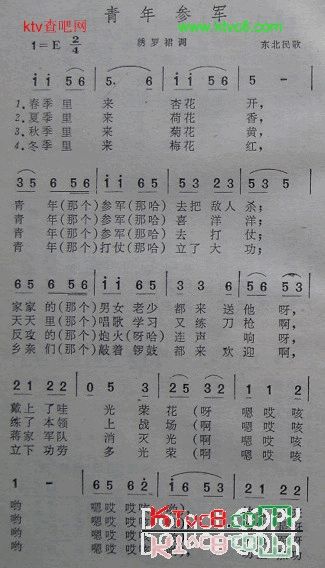 ktv查吧网
www.ktvc8.com
青年参军
1=E 2/4
绣罗裙调
东北民歌
1 1 5 6 | 5. 6 | 1 1 5 6 | 5
1.春季里 来 杏花 开，
2.夏季里 来 荷花 香，
3.秋季里 来 菊花 黄，
4.冬季里 来 梅花 红，
3 5 6 5 | 1 1 6 5 | 5 3 2 3 | 5 3 5
青 年(那个)参军(那哈)去把敌人杀；
青 年(那个)参军(那哈)喜 洋 洋；
青 年(那个)参军(那哈)去 打 仗；
青 年(那个)打仗(那哈)立了大 功；
家家的(那个)男女老少 都来送他呀，
天天里(那个)唱歌学习 又练刀枪啊，
反攻的(那个)炮火(呀哈)连声 响呀，
乡亲们(那个)敲着锣鼓 都来欢迎啊，
2 1 2 2 | 0 5 3 | 2 1 2 2 | 1 1 2
戴上了哇 光荣花(呀 嗯哎咳
练了本领 上战场(啊 嗯哎咳
蒋家军队 消灭光(啊 嗯哎咳
立下功劳 多光荣(啊 嗯哎咳
哟 嗯哎哎咳哟)
哟 嗯哎哎咳
哟 嗯哎哎咳
哟 嗯哎哎咳
KTvc8.com